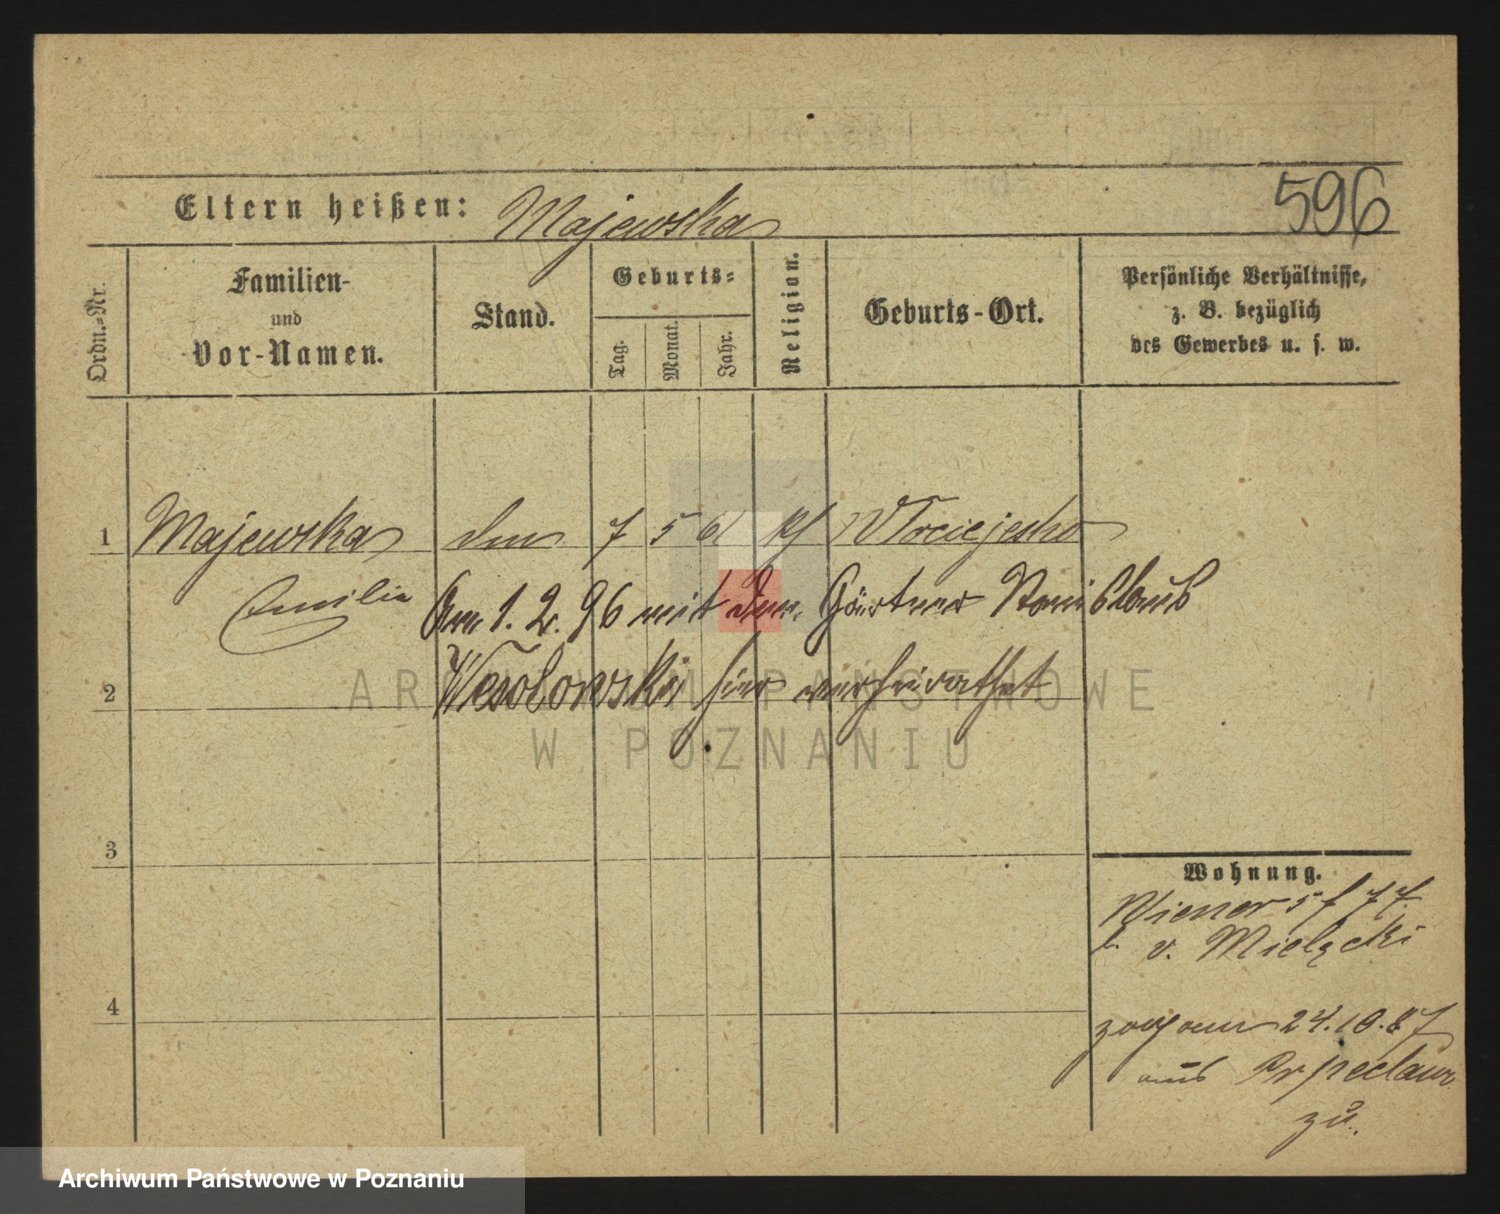 596
Eltern heißen: Majewska
Ordn.-Nr.
Familien-
und
Vor-Namen.
Stand.
Geburts-
Tag.
Monat.
Jahr.
Religion.
Geburts-Ort.
Persönliche Verhältnisse,
z. B. bezüglich
des Gewerbes u. s. w.
1 Majewska 7 5
Emilie Am 1. 2. 96 mit dem Gärtner Stanislaus
2 Wesolowski hier verheirathet
ARCHIWUM PAŃSTWOWE
W POZNANIU
3
4
Wohnung.
Wiener
v. Mielęcki
zog am 24.10.87
aus
zu.
Archiwum Państwowe w Poznaniu